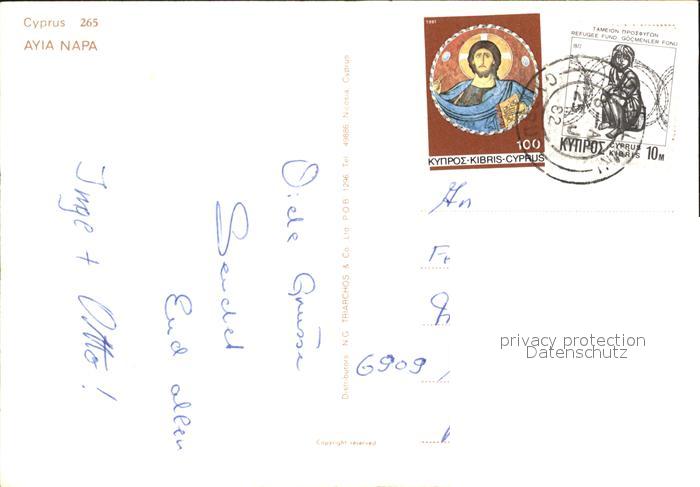 Cyprus 265
ΑΥΙΑ ΝΑΡΑ
1981
100
ΚΥΠΡΟΣ-KIBRIS-CYPRUS
ΤΑΜΕΙΟΝ ΠΡΟΣΦΥΓΩΝ
REFUGEE FUND GÖÇMENLER FONU
1977
ΚΥΠΡΟΣ CYPRUS KIBRIS 10M
Viele Grüsse
Sendet
Eud allen
Inge + Otto!
Distributors N.G. TRIARCHOS & Co. Ltd P.O.B. 1296, Tel. 49886, Nicosia, Cyprus
Copyright reserved
An
Fr
6909
privacy protection
Datenschutz